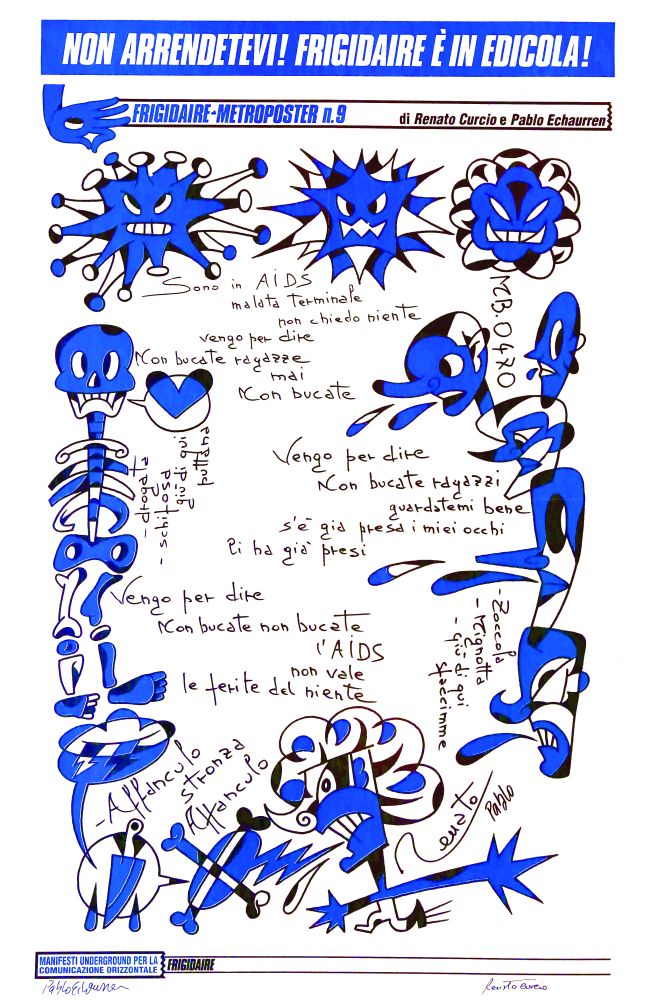 NON ARRENDETEVI! FRIGIDAIRE È IN EDICOLA!
FRIGIDAIRE-METROPOSTER n.9
di Renato Curcio e Pablo Echaurren
Sono in AIDS
malata terminale
non chiedo niente
vengo per dire
Non bucate ragazze
mai
Non bucate
M.B. 0470
- drogata
- schifosa
giù di qui
puttana
Vengo per dire
Non bucate ragazzi
guardatemi bene
s'è già presa i miei occhi
li ha già presi
Vengo per dire
Non bucate non bucate
l'AIDS
non vale
le ferite del niente
- Zoccola
- Mignotta
- giù di qui
staccimme
- Affanculo
stronza
Affanculo
Renato
Pablo
MANIFESTI UNDERGROUND PER LA
COMUNICAZIONE ORIZZONTALE
FRIGIDAIRE
Pablo Echaurren
Renato Curcio